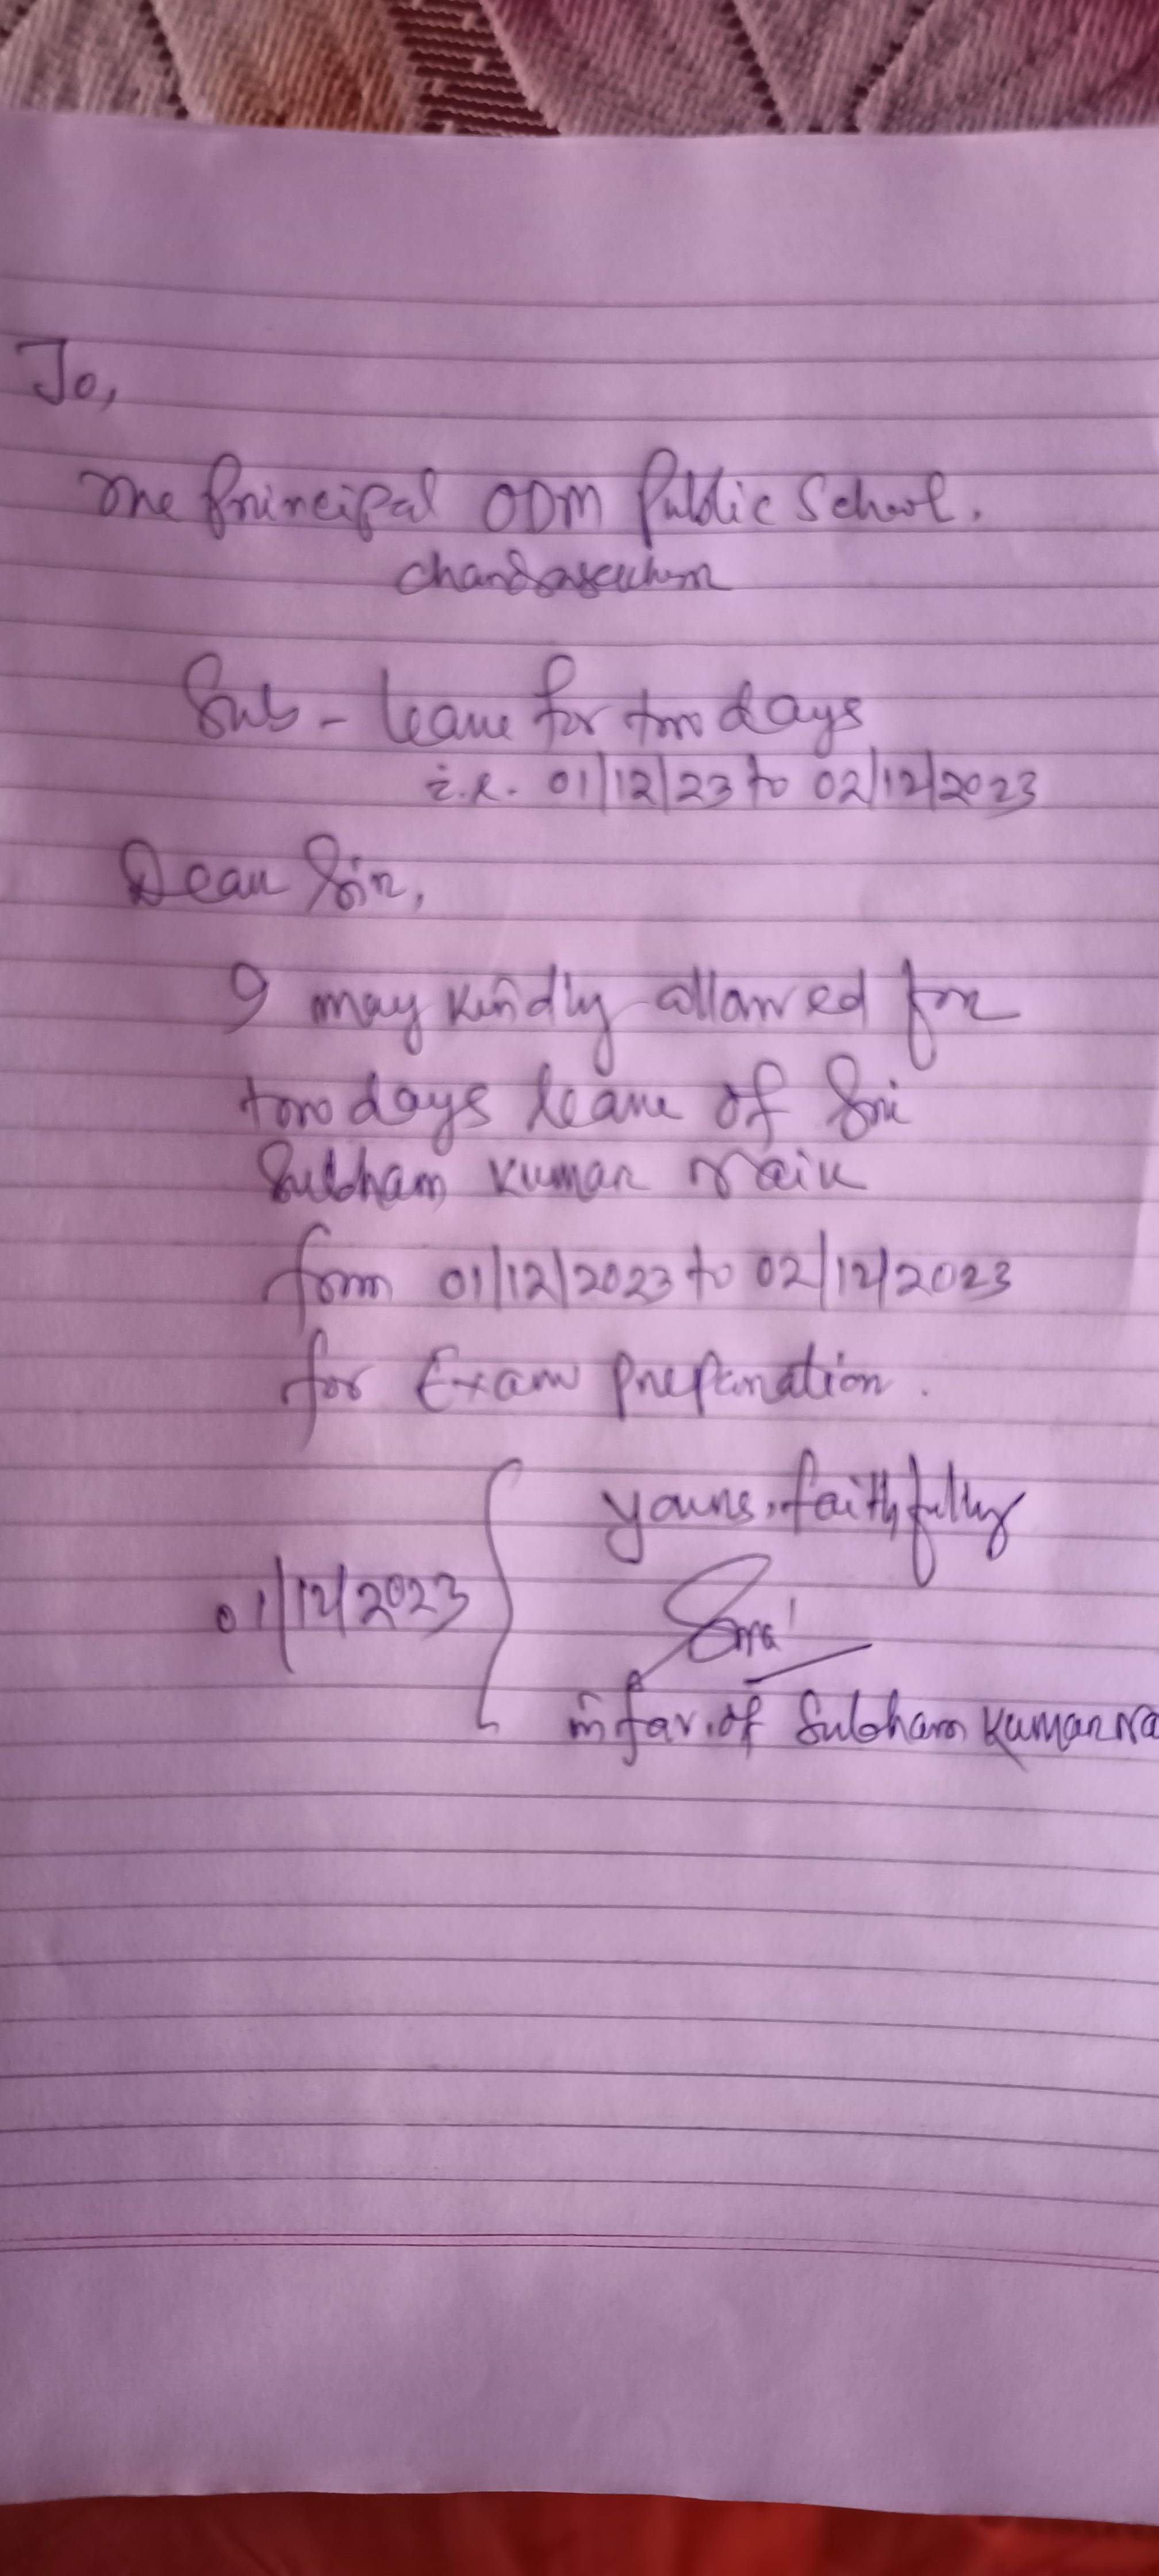 To,
The Principal ODM Public School.
Sub - leave for two days
i.e. 01/12/23 to 02/12/2023
Dear Sir,
I may kindly allowed for
two days leave of Sri
Subham Kumar Naik
from 01/12/2023 to 02/12/2023
for Exam preparation.
yours faithfully
01/12/2023
in fav. of Subham Kumar Na